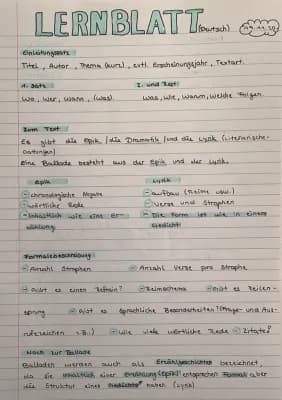 LERNBLATT (Deutsch)
Einleitungssatz
Titel, Autor, Thema (kurz), evtl. Erscheinungsjahr, Textart.
1. Satz 2. und Rest
Wo, Wer, Wann, (Was). Was, Wie, Warum, Welche Folgen.
Zum Text
Es gibt die Epik / die Dramatik / und die Lyrik (Literarische-
Gattungen)
Eine Ballade besteht aus der Epik und der Lyrik.
Epik Lyrik
- chronologische Abgabe - aufbau (Reime usw.)
- wörtliche Rede - Verse und Strophen
- Inhaltlich wie eine Er- - Die Form ist wie in einem
zählung Gedicht
Formbeschreibung
- Anzahl Strophen - Anzahl Verse pro Strophe
- Gibt es einen Refrain? - Reimschema - Gibt es Zeilen-
sprung - Gibt es sprachliche Besonderheiten? (Frage- und Aus-
rufezeichen z.B.) - Wie viele wörtliche Rede - Zitate?
Noch zur Ballade
Balladen werden auch als Erzählgedichte bezeichnet,
da sie inhaltlich einer Erzählung (Epik) entsprechen Formal aber
die Struktur eines Gedichtes haben (Lyrik)